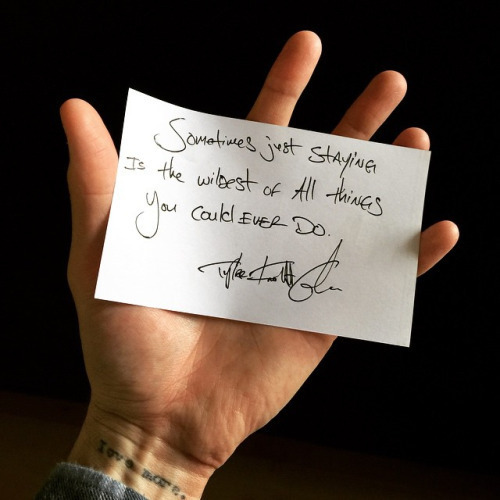 Sometimes just STAYING
Is the wildest of All thiNGS
You could EVER Do.
Tyler Knott G
love more.